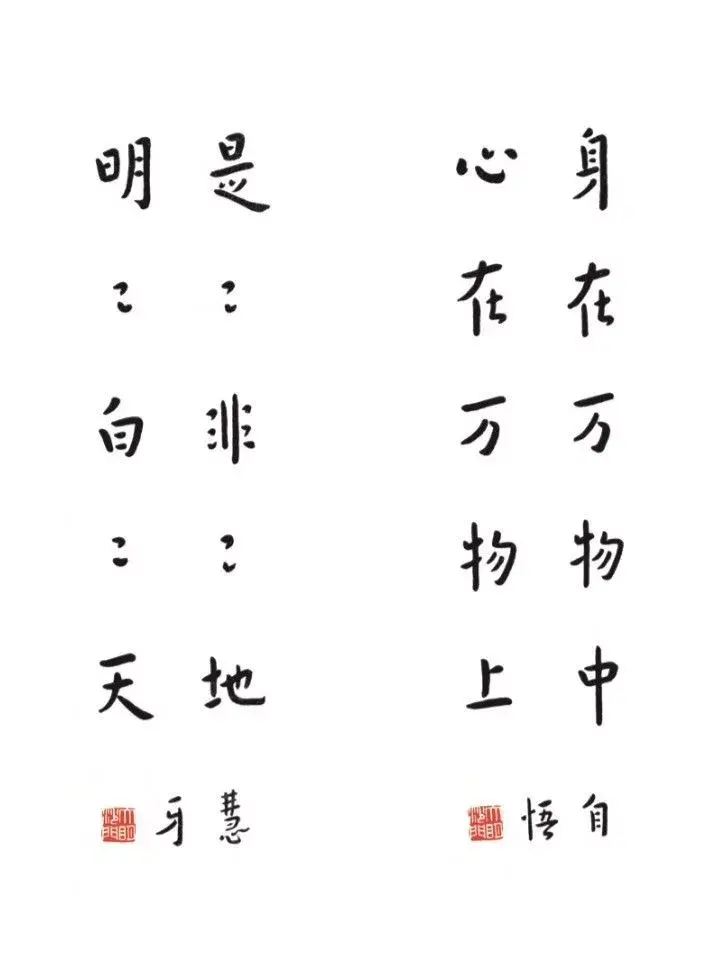 身在万物中
心在万物上
自悟
是〻非〻地
明〻白〻天
慧牙